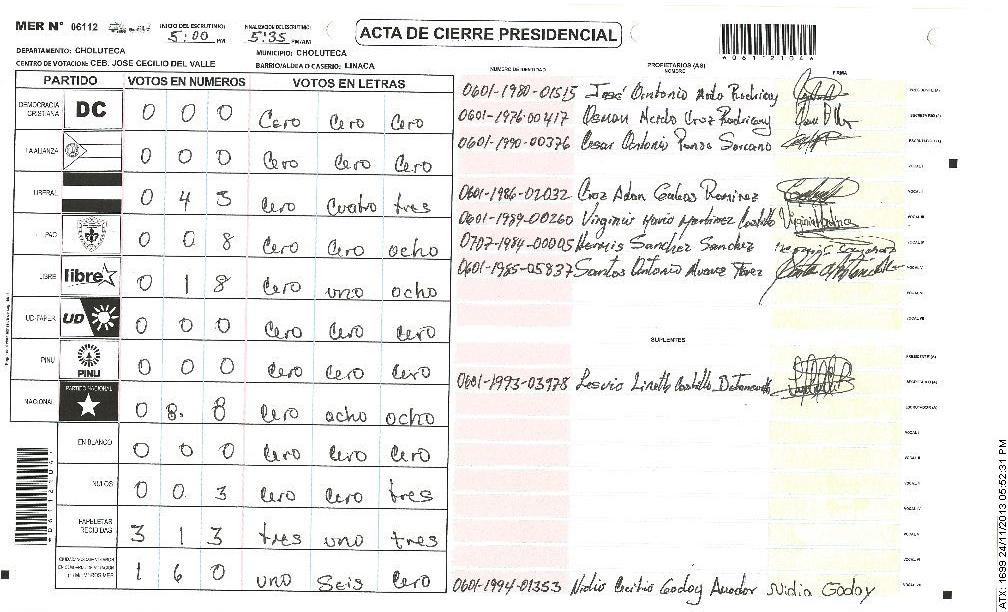 MER Nº 06112
INICIO DEL ESCRUTINIO
5:00 PM
FINALIZACION DEL ESCRUTINIO
5:35 PM/AM
ACTA DE CIERRE PRESIDENCIAL
DEPARTAMENTO: CHOLUTECA
MUNICIPIO: CHOLUTECA
CENTRO DE VOTACION: CEB. JOSE CECILIO DEL VALLE
BARRIO/ALDEA O CASERIO: LINACA
PARTIDO VOTOS EN NUMEROS VOTOS EN LETRAS
DEMOCRACIA CRISTIANA DC 0 0 0 Cero Cero Cero
LA ALIANZA 0 0 0 Cero Cero Cero
LIBERAL 0 4 3 Cero Cuatro tres
PAC 0 0 8 Cero Cero ocho
LIBRE libre 0 1 8 Cero uno ocho
UD-FAPER UD 0 0 0 Cero Cero Cero
PINU PINU 0 0 0 Cero Cero Cero
NACIONAL PARTIDO NACIONAL 0 8. 8 Cero ocho ocho
EN BLANCO 0 0 0 Cero Cero Cero
NULOS 0 0 3 Cero Cero tres
PAPELETAS RECIBIDAS 3 1 3 tres uno tres
1 6 0 uno Seis Cero
NUMERO DE IDENTIDAD
PROPIETARIOS (AS)
NOMBRE
FIRMA
0601-1980-01515 José Antonio Rodriguez
0601-1976-00417 Cruz Rodriguez
0601-1990-00376 Cesar Antonio
0601-1986-02032 Cruz Adan Ramirez
0601-1989-00260 Martinez Castillo
0707-1984-00005 Sanchez Sanchez
0601-1985-05837 Santos Antonio
SUPLENTES
0601-1993-03978 Castillo
0601-1994-01353 Godoy Amador Nidia Godoy
ATX: 1699 24/11/2013 05:52:31 PM